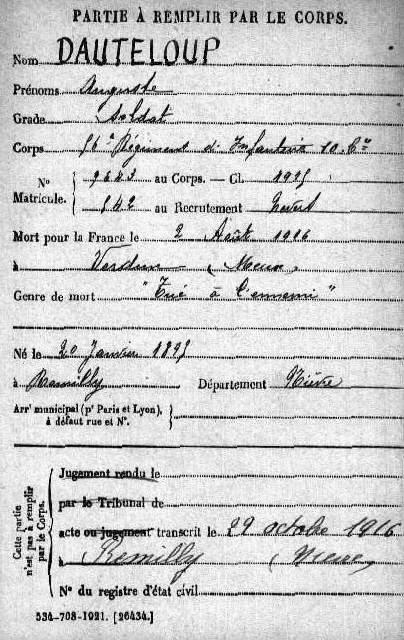 PARTIE À REMPLIR PAR LE CORPS.
Nom DAUTELOUP
Prénoms Auguste
Grade Soldat
Corps 56e Régiment d'Infanterie 10e Cie
No Matricule. 9643 au Corps. — Cl. 1915
842 au Recrutement Nevers
Mort pour la France le 2 Août 1916
à Verdun (Meuse)
Genre de mort "Tué à l'ennemi"
Né le 20 Janvier 1895
à Remilly Département Nièvre
Arrt municipal (pr Paris et Lyon),
à défaut rue et No.
Cette partie n'est pas à remplir par le Corps.
Jugement rendu le
par le Tribunal de
acte ou jugement transcrit le 29 octobre 1916
à Remilly (Nièvre)
No du registre d'état civil
534-708-1921. [26434.]